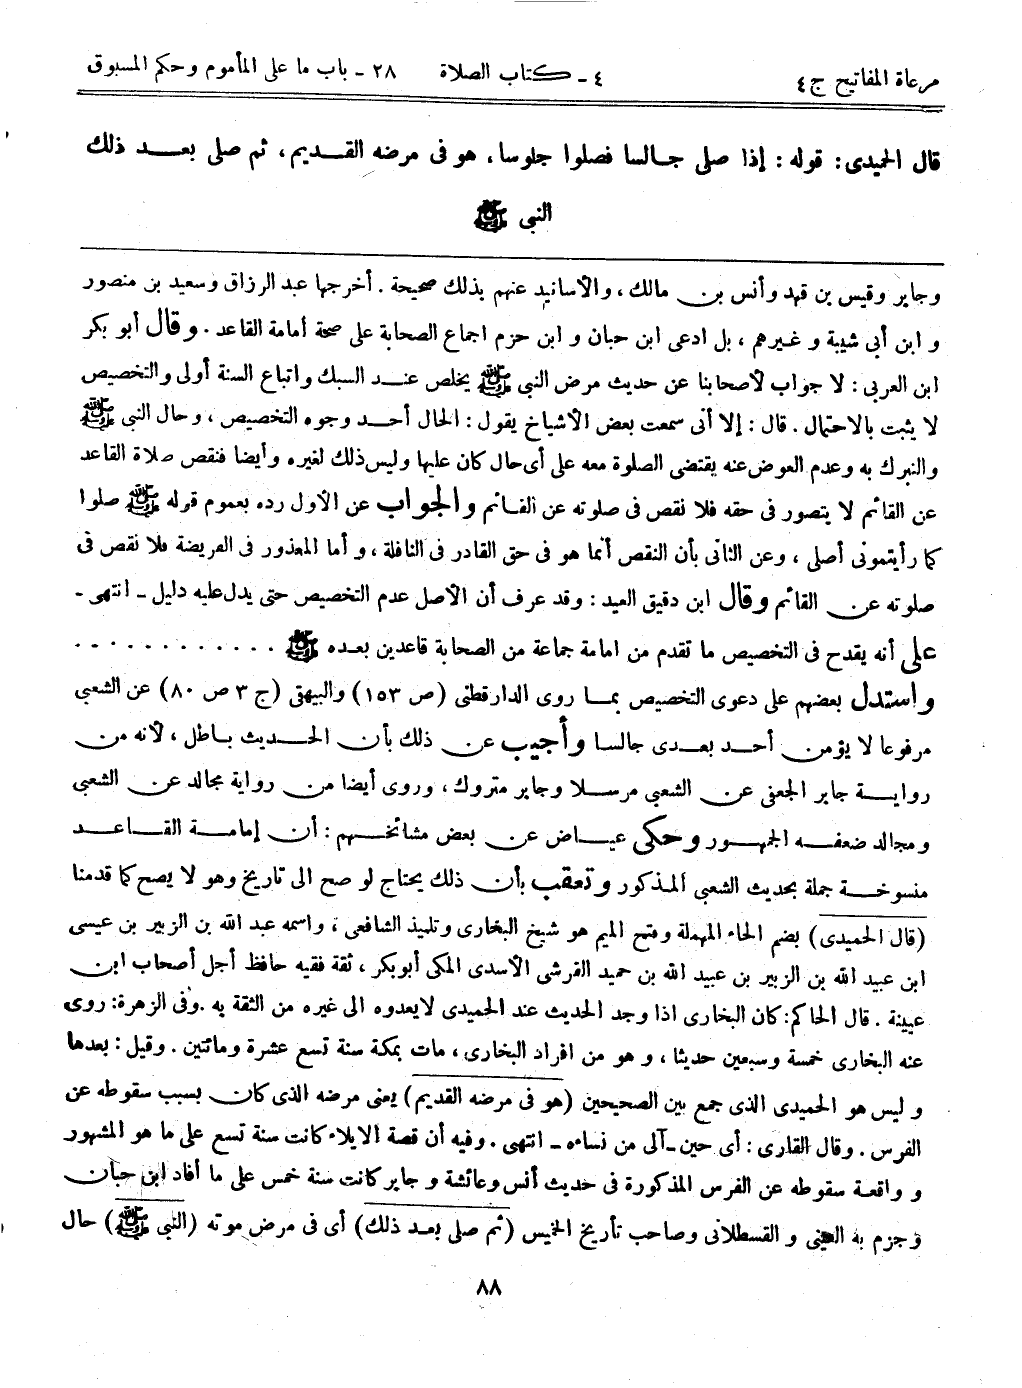 مرعاة المفاتيح ج ٤ ٤ - كتاب الصلاة ٢٨ - باب ما على المأموم وحكم المسبوق
قال الحميدى: قوله: إذا صلى جالسا فصلوا جلوسا، هو فى مرضه القديم، ثم صلى بعد ذلك
النبى ﷺ
وجابر وقيس بن قهد وأنس بن مالك، والأسانيد عنهم بذلك صحيحة. أخرجها عبد الرزاق وسعيد بن منصور
و ابن أبى شيبة و غيرهم، بل ادعى ابن حبان و ابن حزم اجماع الصحابة على صحة أمامة القاعد. وقال أبو بكر
ابن العربى: لا جواب لأصحابنا عن حديث مرض النبى ﷺ يخلص عند السبك واتباع السنة أولى والتخصيص
لا يثبت بالاحتمال. قال: إلا أنى سمعت بعض الأشياخ يقول: الحال أحد وجوه التخصيص، وحال النبى ﷺ
والتبرك به وعدم العوض عنه يقتضى الصلوة معه على أى حال كان عليها وليس ذلك لغيره وأيضا فنقص صلاة القاعد
عن القائم لا يتصور فى حقه فلا نقص فى صلوته عن القائم والجواب عن الأول رده بعموم قوله ﷺ صلوا
كما رأيتمونى أصلى، وعن الثانى بأن النقص أنما هو فى حق القادر فى النافلة، و أما المعذور فى الفريضة فلا نقص فى
صلوته عن القائم وقال ابن دقيق العيد: وقد عرف أن الأصل عدم التخصيص حتى يدل عليه دليل - انتهى -
على أنه يقدح فى التخصيص ما تقدم من امامة جماعة من الصحابة قاعدين بعده ﷺ . . . . . . . . . . . .
واستدل بعضهم على دعوى التخصيص بما روى الدارقطنى (ص ١٥٣) والبيهقى (ج ٣ ص ٨٠) عن الشعبى
مرفوعا لا يؤمن أحد بعدى جالسا وأجيب عن ذلك بأن الحديث باطل، لأنه من
رواية جابر الجعفى عن الشعبى مرسلا وجابر متروك، وروى أيضا من رواية مجالد عن الشعبى
ومجالد ضعفه الجمهور وحكى عياض عن بعض مشائخهم: أن إمامة القاعد
منسوخة جملة بحديث الشعبى المذكور وتعقب بأن ذلك يحتاج لو صح الى تاريخ وهو لا يصح كما قدمنا
(قال الحميدى) بضم الحاء المهملة وفتح الميم هو شيخ البخارى وتلميذ الشافعى، واسمه عبد الله بن الزبير بن عيسى
ابن عبيد الله بن الزبير بن عبيد الله بن حميد القرشى الأسدى المكى أبوبكر، ثقة فقيه حافظ أجل أصحاب ابن
عيينة. قال الحاكم: كان البخارى اذا وجد الحديث عند الحميدى لايعدوه الى غيره من الثقة به. وفى الزهرة: روى
عنه البخارى خمسة وسبعين حديثا، و هو من افراد البخارى، مات بمكة سنة تسع عشرة ومائتين. وقيل: بعدها
و ليس هو الحميدى الذى جمع بين الصحيحين (هو فى مرضه القديم) يعنى مرضه الذى كان بسبب سقوطه عن
الفرس. وقال القارى: أى حين - آلى من نساءه - انتهى. وفيه أن قصة الايلاء كانت سنة تسع على ما هو المشهور
و واقعة سقوطه عن الفرس المذكورة فى حديث أنس وعائشة و جابر كانت سنة خمس على ما أفاد ابن حبان
وجزم به العينى و القسطلانى وصاحب تأريخ الخميس (ثم صلى بعد ذلك) أى فى مرض موته (النبى ﷺ) حال
٨٨